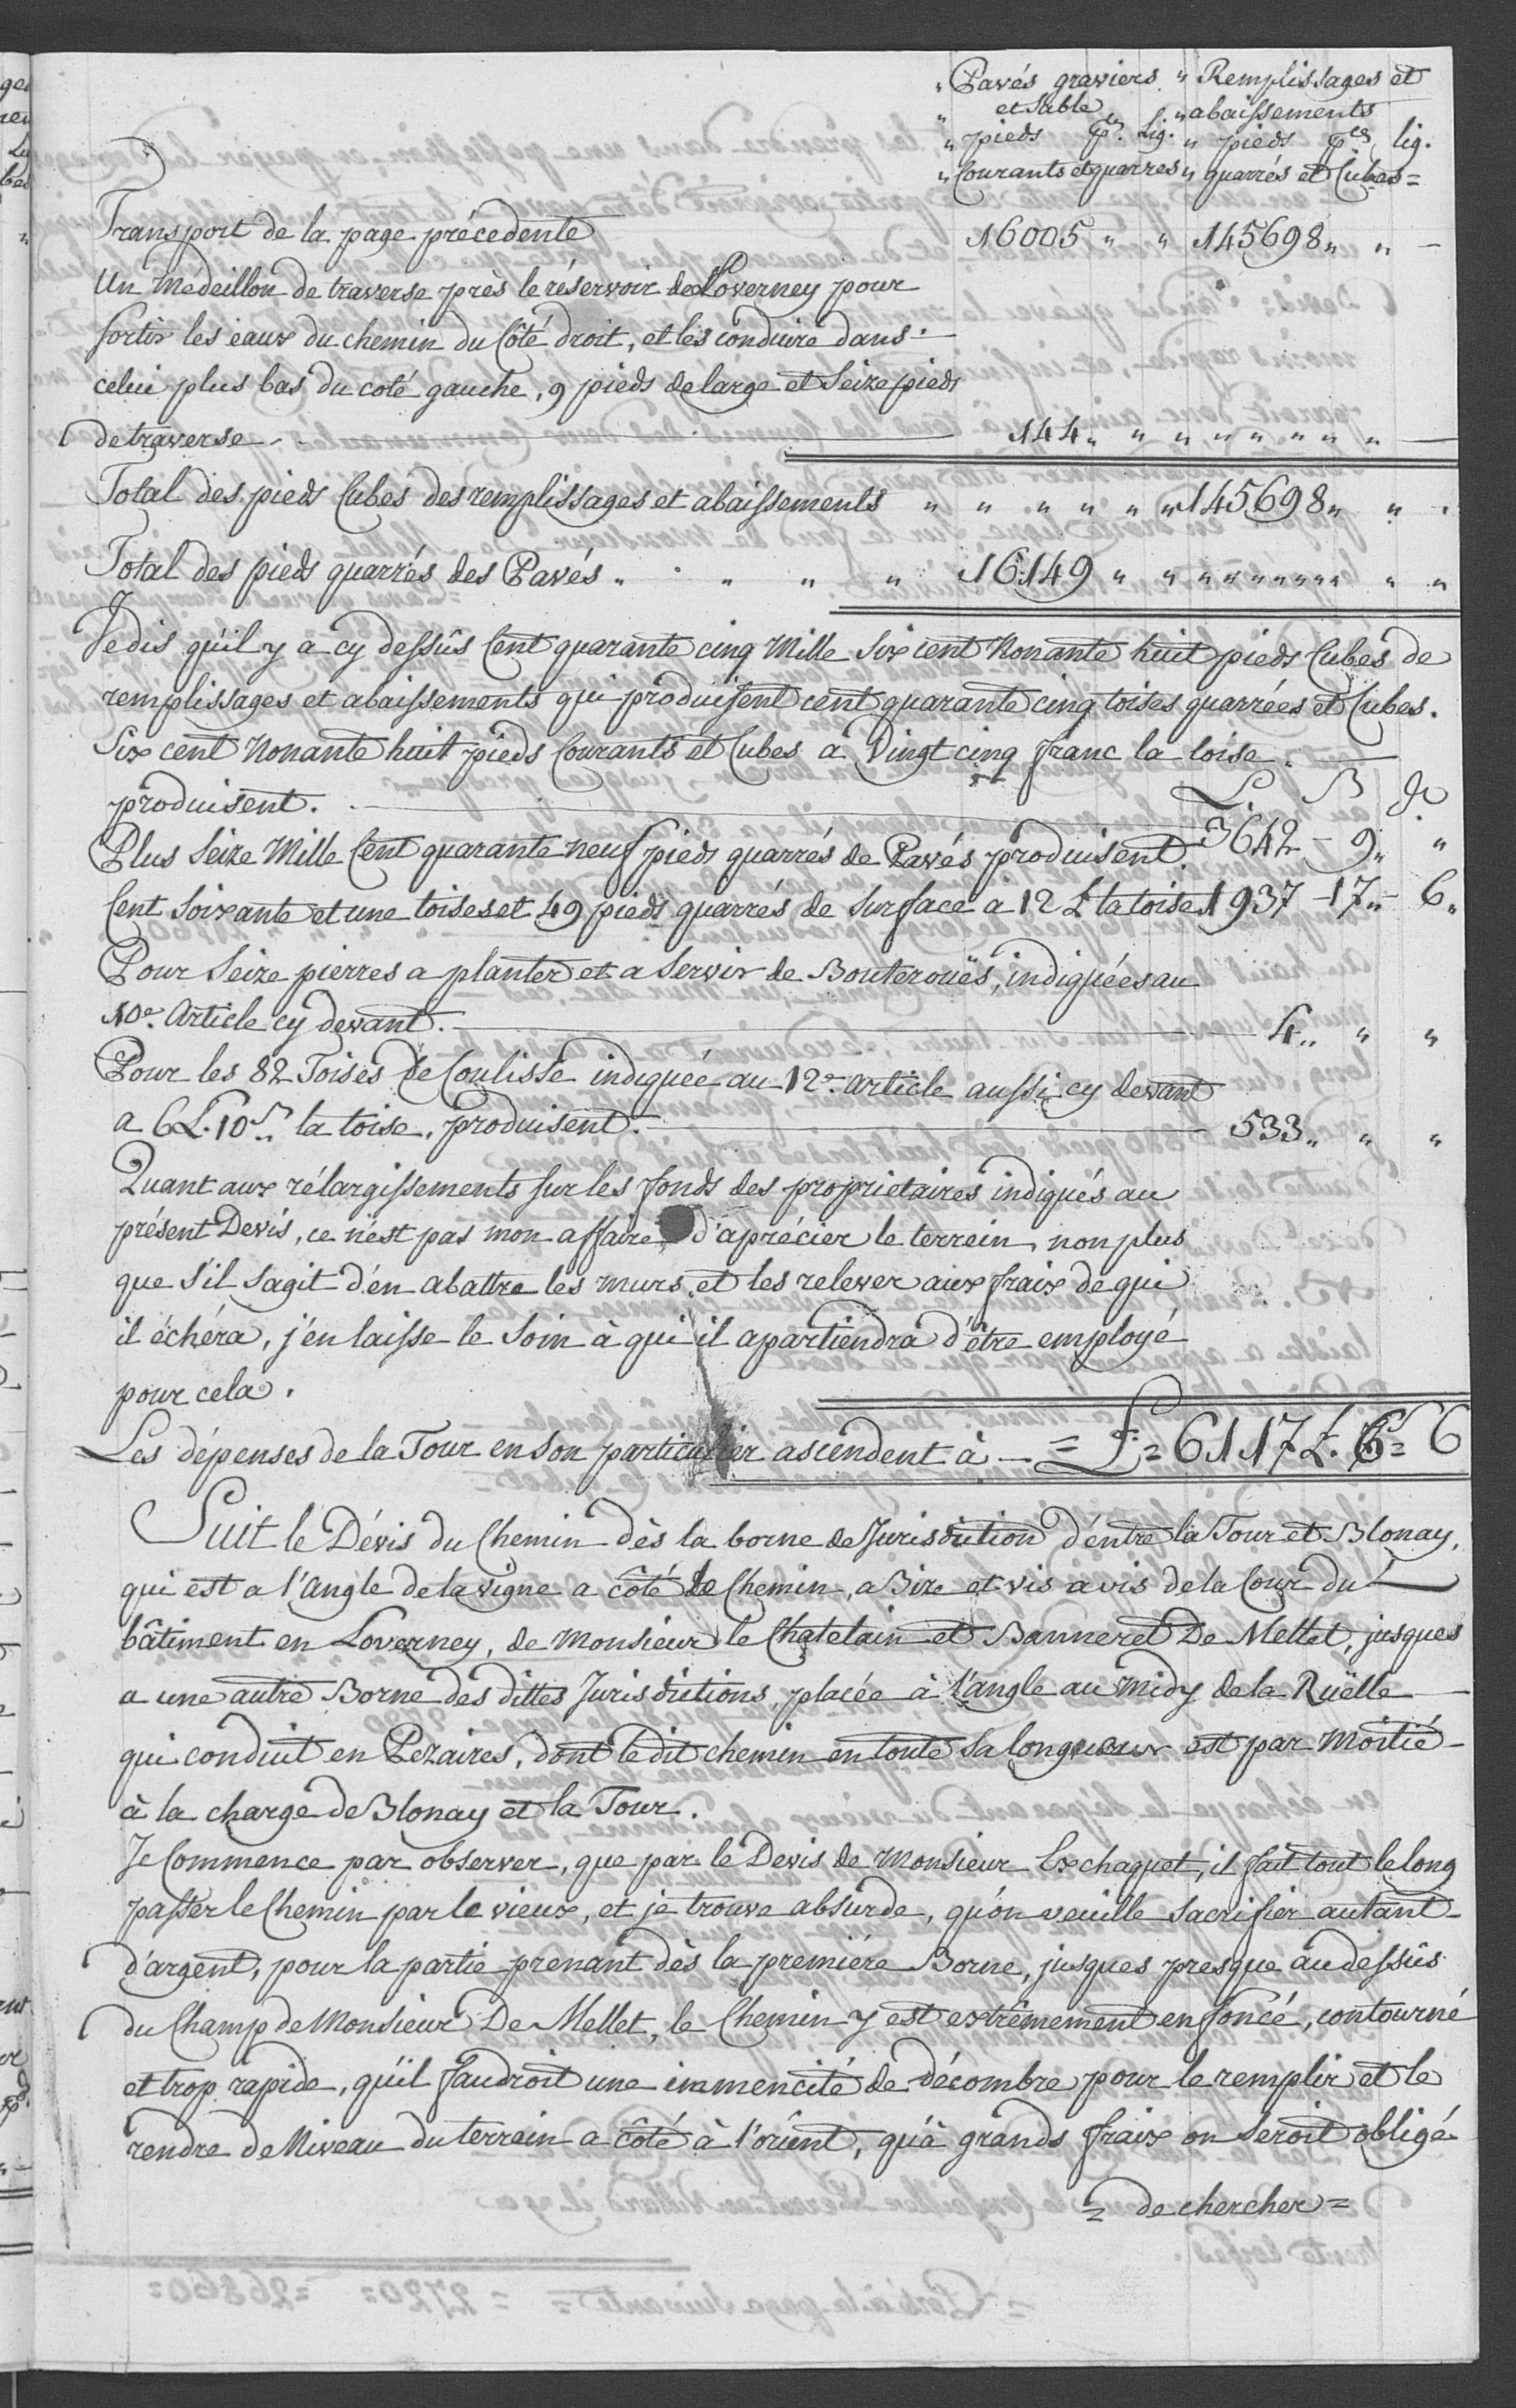 " Pavés graviers " Remplissages et
" et Sable " abaissements
" pieds pces. Lig. " pieds pces lig.
" Courants et quarres " quarrés et Cubes =
Transport de la page précedente 16005 " " 145698 " " —
Un Médeillon de traverse près le réservoir de Loverney pour
sortir les eaux du chemin du Côté droit, et les conduire dans
celui plus bas du coté gauche, 9 pieds de large et Seize pieds
de traverse — 144 " " " " " " " —
Total des pieds Cubes des remplissages et abaissements " " " " " " 145698 " " "
Total des pieds quarrés des Pavés " " " " 16149 " " " " " " " " " " "
Je dis qu'il y a cy dessûs Cent quarante cinq Mille Six cent Nonante huit pieds Cubes de
remplissages et abaissements qui produisent cent quarante cinq toises quarrées et Cubes.
Six cent Nonante huit pieds Courants et Cubes a Vingt cinq franc la toise. —
L. B d.
produisent. — 3642 – 9 " "
Plus Seize Mille Cent quarante neuf pieds quarrés de Pavés produisent
Cent Soixante et une toises et 49 pieds quarrés de surface a 12 L la toise 1937 – 17 " – 6 "
Pour Seize pierres a planter et a Servir de Bouterouës, indiquées au
10e. Article cy devant. — 4 " " "
Pour les 82 Toises de Coulisse indiquée au 12e. article aussi cy devant
a 6 L. 10 s. la toise, produisent. — 533 " " "
Quant aux rélargissements sur les fonds des proprietaires indiqués au
présent Devis, ce n'est pas mon affaire d'aprécier le terrein, non plus
que s'il s'agit d'en abattre les murs, et les relever aux fraix de qui
il échéra, j'en laisse le Soin à qui il apartiendra d'être employé
pour cela.
Les dépenses de la Tour en son particulier ascendent à — = £ = 6117 L. 6 s = 6
Suit le Dévis du Chemin dès la borne de Jurisdiction d'entre la Tour et Blonay,
qui est a l'angle de la vigne a côté le Chemin, a Bize et vis a vis de la Cour du
bâtiment en Loverney, de Monsieur le Chatelain et Banneret De Mellet, jusques
a une autre Borne des dittes Jurisdictions, placée à l'angle au midy de la Ruëlle —
qui conduit en Pezaires, dont le dit chemin en toute Sa longueur est par Moitié —
à la charge de Blonay et la Tour.
Je Commence par observer, que par le Devis de Monsieur Exchaquet, il fait tout le long
passer le Chemin par le vieux, et je trouve absurde, qu'on veuille Sacrifier autant —
d'argent, pour la partie prenant dès la premiére Borne, jusques presque au dessûs
du Champ de Monsieur De Mellet, le Chemin y est extrêmement enfoncé, contourné
et trop rapide, qu'il faudroit une immencité de décombre pour le remplir et le
rendre de Niveau du terrein a côté à l'orient, qu'à grands fraix on Seroit obligé
= de chercher =